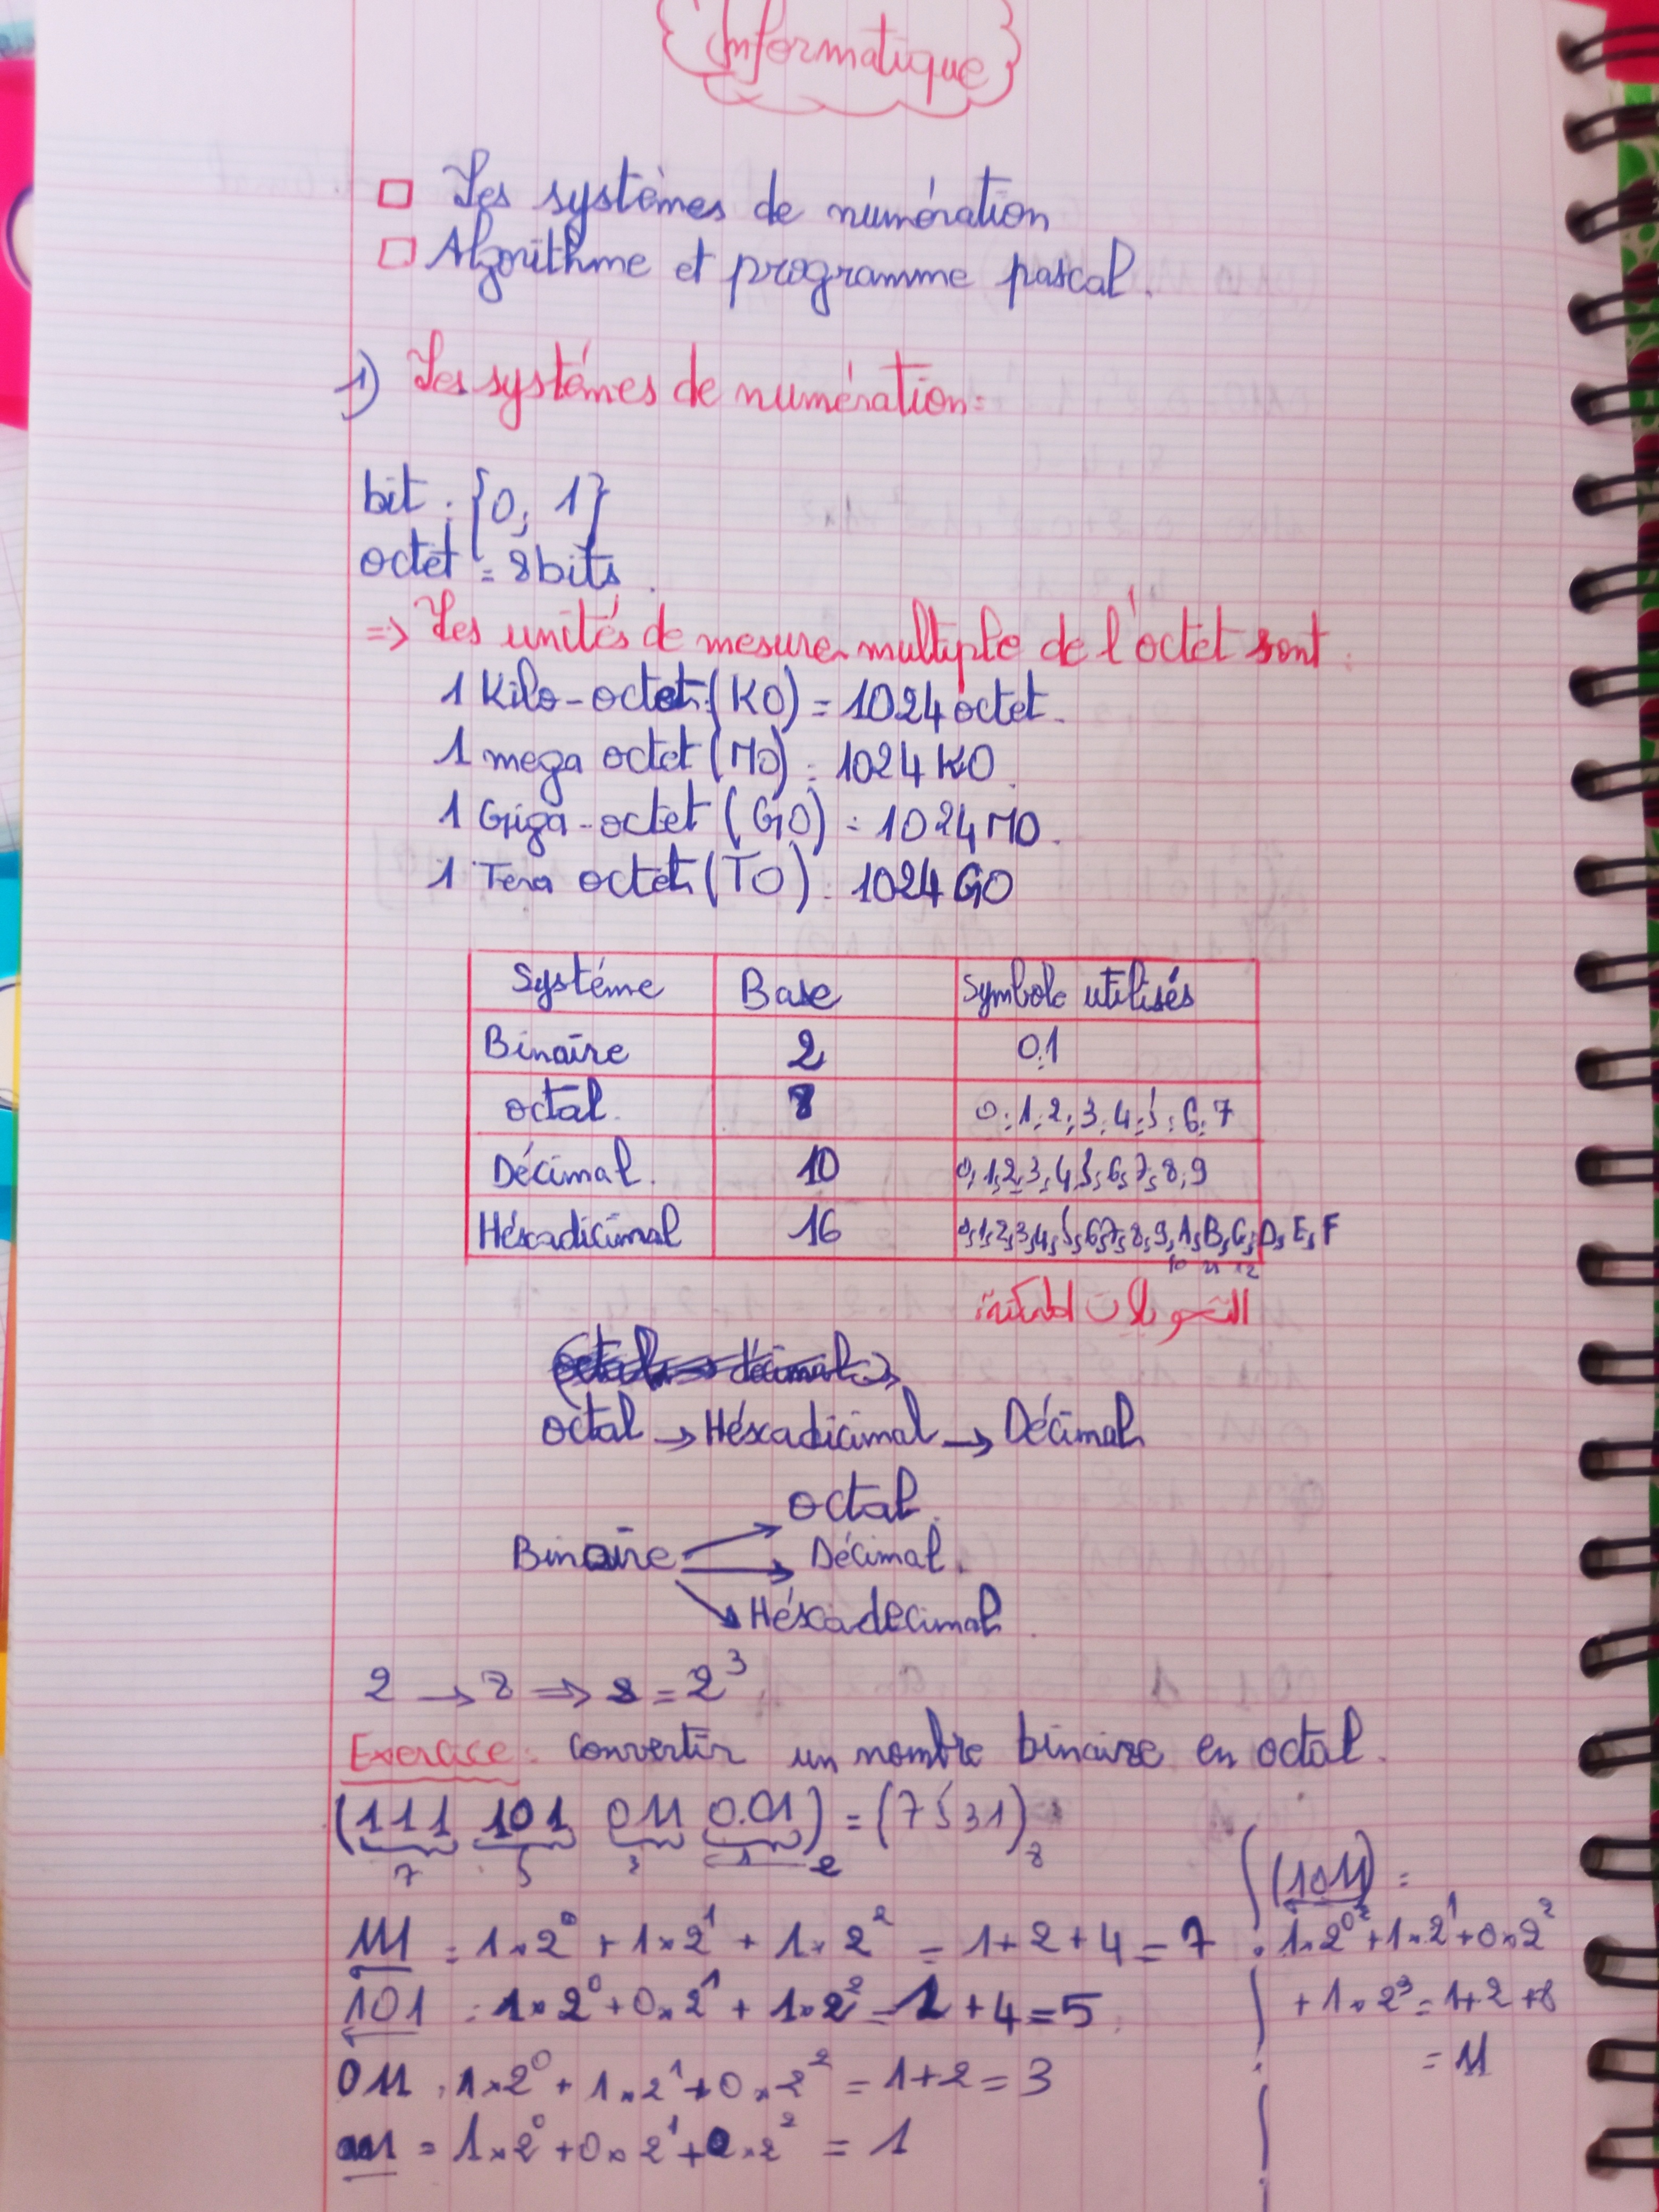 Informatique
Les systèmes de numération
Algorithme et programme pascal.
1) Les systémes de numération:
bit : {0, 1}
octet = 8 bits.
=> Les unités de mesure multiple de l'octet sont :
1 Kilo-octet (KO) = 1024 octet.
1 mega octet (MO) : 1024 KO.
1 Giga-octet (GO) = 1024 MO.
1 Tera octet (TO) : 1024 GO
Systéme Base Symbole utilisés
Binaire 2 0,1
octal. 8 0;1;2;3;4;5;6;7
Décimal. 10 0,1,2,3,4,5,6,7,8,9
Héxadicimal 16 0,1,2,3,4,5,6,7,8,9,A,B,C,D,E,F
10 11 12
التحويلات الممكنة:
octal → Héxadicimal → Décimal
octal.
Binaire → Décimal.
Héxadécimal.
2 → 8 => 8 = 2³
Exercice : convertir un nombre binaire en octal.
(111 101 011 001)₂ = (7531)₈
7 5 3 1
(1011) =
111 = 1×2⁰ + 1×2¹ + 1×2² = 1+2+4 = 7
1×2⁰ + 1×2¹ + 0×2²
101 = 1×2⁰ + 0×2¹ + 1×2² = 1 + 4 = 5
+ 1×2³ = 1+2+8
= 11
011 = 1×2⁰ + 1×2¹ + 0×2² = 1+2 = 3
001 = 1×2⁰ + 0×2¹ + 0×2² = 1